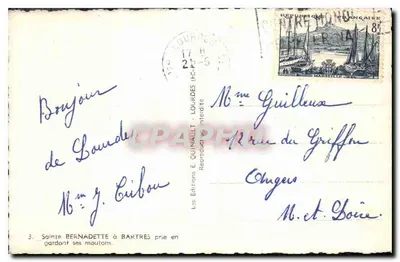 RÉPUBLIQUE FRANÇAISE
8F
17 H
Bonjour
de Lourdes
Mme J. Cibou
Mme Guilleux
12 rue du Griffon
Angers
M. et Loire
Les Editions E. QUINAULT - LOURDES
Reproduction interdite
3. Sainte BERNADETTE à BARTRÈS prie en
gardant ses moutons.
CARTE-PRECIEUSE.COM